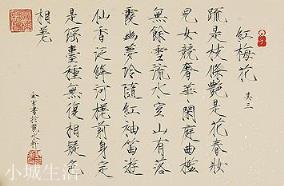 紅梅花 其三
疏是枝條艷是花春妝
兒女競奢華閑庭曲檻
無餘雪流水空山有落
霞幽夢冷隨紅袖笛遊
仙香泛絳河槎前身定
是瑤臺種無復相疑色
相差
小城生活